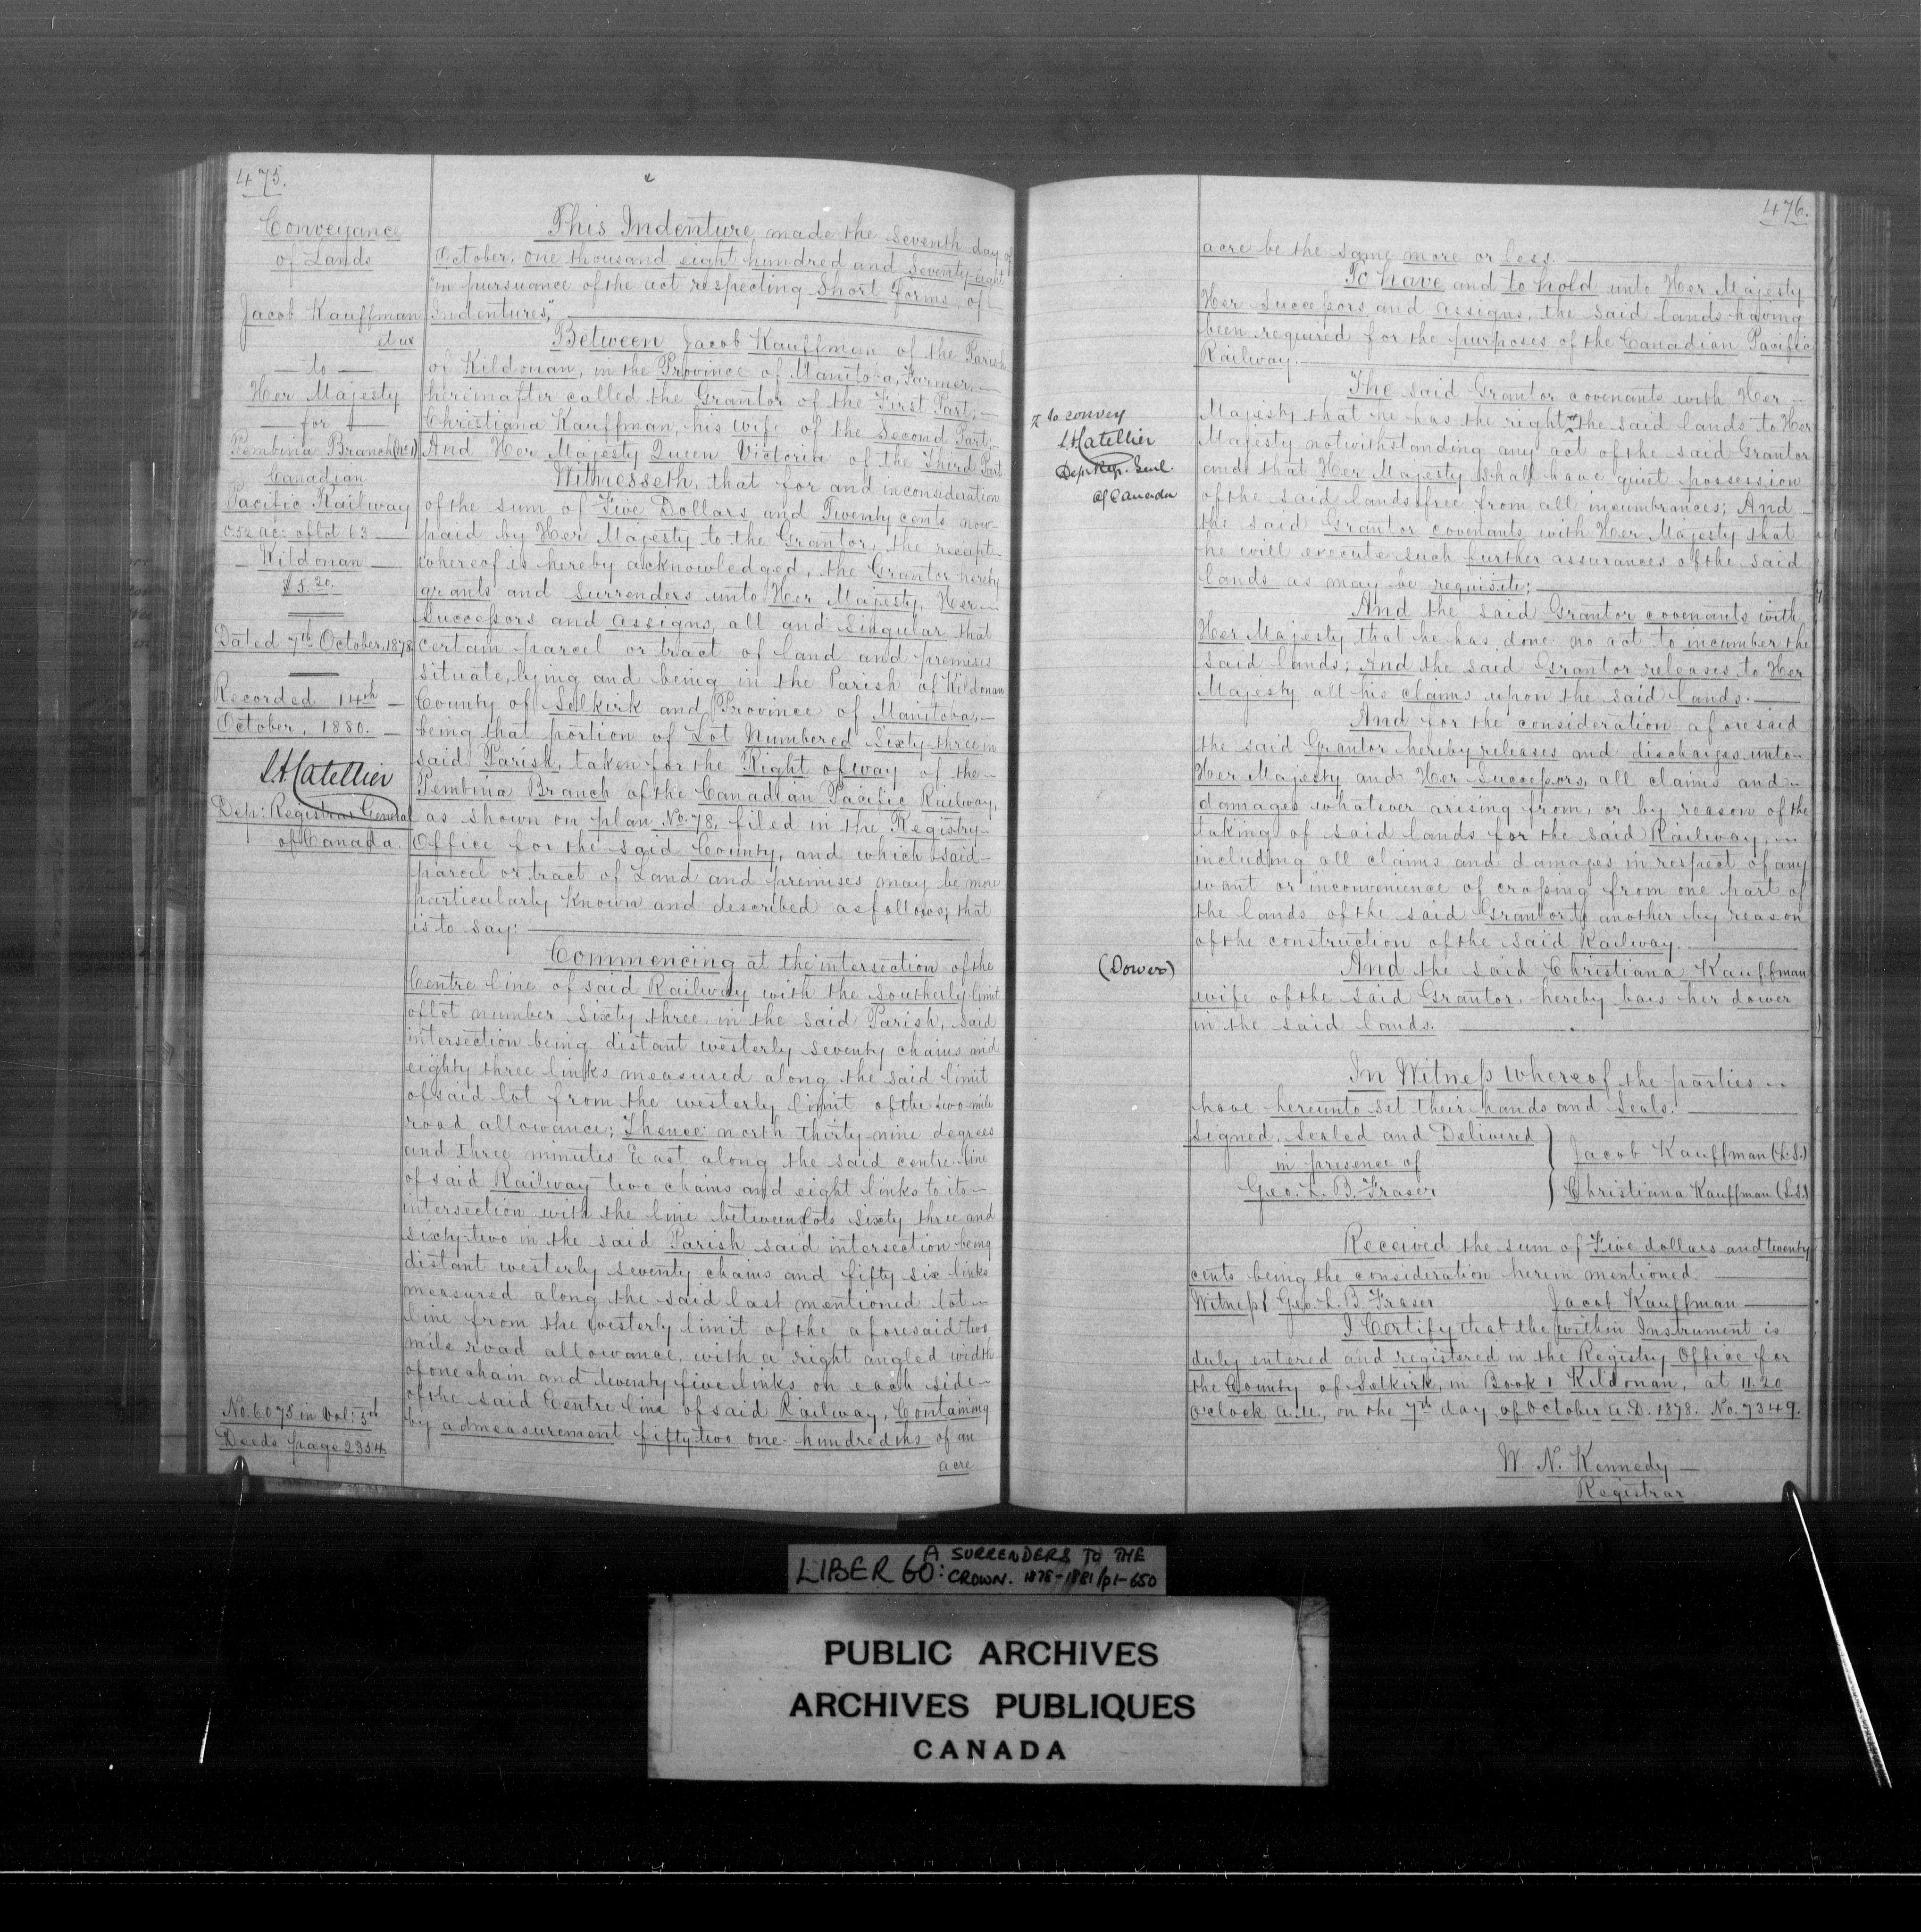 475.
Conveyance
of Lands
Jacob Kauffman
et ux
— to —
Her Majesty
— for —
Pembina Branch (No 1)
Canadian
Pacific Railway
0.52 ac: of lot 63
Kildonan
$5.20.
Dated 7th October, 1878
Recorded 14th
October, 1880.
Dep: Registrar General
of Canada.
No. 6075 in Vol: 5th
Deeds page 2354
This Indenture, made the seventh day of
October, one thousand eight hundred and seventy-eight
"in pursuance of the act respecting Short Forms of
Indentures,"
Between Jacob Kauffman of the Parish
of Kildonan, in the Province of Manitoba, Farmer, —
hereinafter called the Grantor of the First Part, —
Christiana Kauffman, his wife of the Second Part,
And Her Majesty Queen Victoria of the Third Part
Witnesseth, that for and in consideration
of the sum of Five Dollars and Twenty cents now
paid by Her Majesty to the Grantor, the receipt
whereof is hereby acknowledged, the Grantor hereby
grants and surrenders unto Her Majesty, Her
Successors and assigns, all and singular that
certain parcel or tract of land and premises
situate, lying and being in the Parish of Kildonan
County of Selkirk and Province of Manitoba, —
being that portion of Lot Numbered Sixty-three in
said Parish, taken for the Right of way of the —
Pembina Branch of the Canadian Pacific Railway,
as shown on plan No. 78, filed in the Registry
Office for the said County, and which said
parcel or tract of Land and premises may be more
particularly known and described as follows; that
is to say:
Commencing at the intersection of the
Centre line of said Railway with the southerly limit
of lot number sixty three, in the said Parish, said
intersection being distant westerly seventy chains and
eighty three links measured along the said limit
of said lot from the westerly limit of the two mile
road allowance; Thence north thirty-nine degrees
and three minutes East along the said centre line
of said Railway two chains and eight links to its —
intersection with the line between Lots sixty three and
sixty-two in the said Parish said intersection being
distant westerly seventy chains and fifty six links
measured along the said last mentioned lot —
line from the westerly limit of the aforesaid two
mile road allowance, with a right angled width
of one chain and twenty five links on each side —
of the said Centre line of said Railway, Containing
by admeasurement fifty-two one-hundredths of an
acre
476.
acre be the same more or less.
To have and to hold unto Her Majesty
Her Successors and assigns, the said lands having
been required for the purposes of the Canadian Pacific
Railway.
The said Grantor covenants with Her —
Majesty that he has the right the said lands to Her
Majesty notwithstanding any act of the said Grantor
and that Her Majesty shall have quiet possession
of the said lands free from all incumbrances; And
the said Grantor covenants with Her Majesty that
he will execute such further assurances of the said
lands as may be requisite;
And the said Grantor covenants with
Her Majesty that he has done no act to incumber the
said lands; And the said Grantor releases to Her
Majesty all his claims upon the said lands.
And for the consideration aforesaid
the said Grantor hereby releases and discharges unto
Her Majesty and Her Successors, all claims and —
damages whatever arising from, or by reason of the
taking of said lands for the said Railway, —
including all claims and damages in respect of any
want or inconvenience of crossing from one part of
the lands of the said Grantor to another by reason
of the construction of the said Railway.
And the said Christiana Kauffman
wife of the said Grantor, hereby bars her dower
in the said lands.
In Witness whereof the parties —
have hereunto set their hands and seals.
Signed, Sealed and Delivered
in presence of
Geo. L. B. Fraser
Jacob Kauffman (L.S.)
Christiana Kauffman (L.S.)
Received the sum of Five dollars and twenty
cents being the consideration herein mentioned.
Witness Geo. L. B. Fraser Jacob Kauffman
I Certify that the within Instrument is
duly entered and registered in the Registry Office for
the County of Selkirk, in Book 1 Kildonan, at 11.20
o'clock a.m., on the 7th day of October A.D. 1878. No. 7349.
W. N. Kennedy —
Registrar
to convey
Dep: Reg. Genl.
of Canada
(Dower)
LIBER 60: A SURRENDERS TO THE
CROWN. 1878-1881/p1-650
PUBLIC ARCHIVES
ARCHIVES PUBLIQUES
CANADA